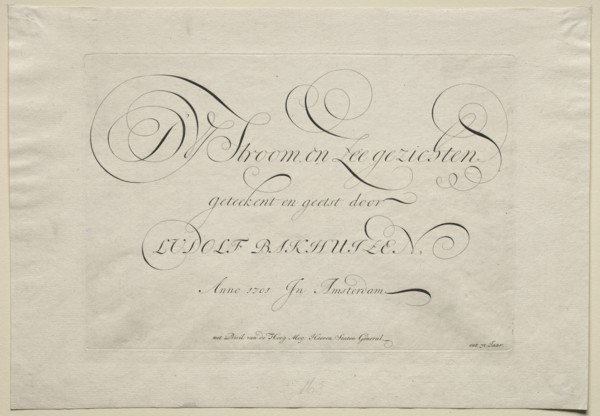 D'Y Stroom, en Zee gezichten.
geteekent en geetst door
LUDOLF BAKHUIZEN.
Anno 1701 In Amsterdam
met Privil. van de Hoog: Mog: Heeren Staten Generael